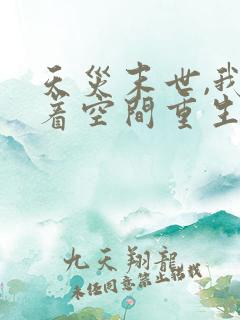 天災末世,我
着空間重生
九天翔龍
未经同意禁止转载